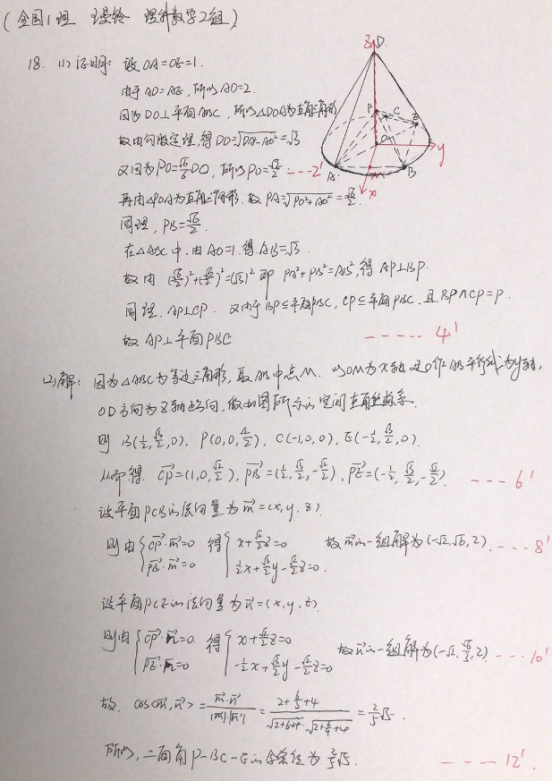 (全国1理 理科数学2组)
18. (1)证明: 设OA=OE=1.
由于AD=AE, 所以AD=2.
因为DO⊥平面ABC, 所以△DOA为直角三角形
故由勾股定理, 得DO=√(DA²-AO²)=√3
又因为PO=√6/6 DO, 所以PO=√2/2 ---2'
再由△POA为直角三角形. 故PA=√(PO²+AO²)=√6/2.
同理, PB=√6/2.
在△ABC中, 由AO=1. 得AB=√3.
故由 (√6/2)²+(√6/2)²=(√3)² 即 PA²+PB²=AB², 得AP⊥BP.
同理, AP⊥CP. 又由于BP⊆平面PBC, CP⊆平面PBC, 且BP∩CP=P.
故AP⊥平面PBC ----- 4'
(2)解: 因为△ABC为等边三角形, 取AB中点M. 以OM为X轴, 过O作AB平行线为y轴,
OD方向为Z轴正向, 做如图所示的空间直角坐标系.
则 B(1/2,√3/2,0), P(0,0,√2/2), C(-1,0,0), E(-1/2,√3/2,0).
从而得 CP=(1,0,√2/2), PB=(1/2,√3/2,-√2/2), PE=(-1/2,√3/2,-√2/2). --- 6'
设平面PCB的法向量为m=(x,y,z)
则由{CP·m=0 PB·m=0 得{x+√2/2z=0 1/2x+√3/2y-√2/2z=0. 故m的一组解为(-√2,√6,2). ---8'
设平面PCE的法向量为n=(x,y,z).
则由{CP·n=0 PE·n=0 得{x+√2/2z=0 -1/2x+√3/2y-√2/2z=0 故n的一组解为(-√2,√6/3,2) ---10'
故. cos<m,n>=m·n/|m||n|=
所以, 二面角P-BC-E的余弦值为2/5√5. ---12'
Z
D
P
C
E
O
y
A
M
B
x